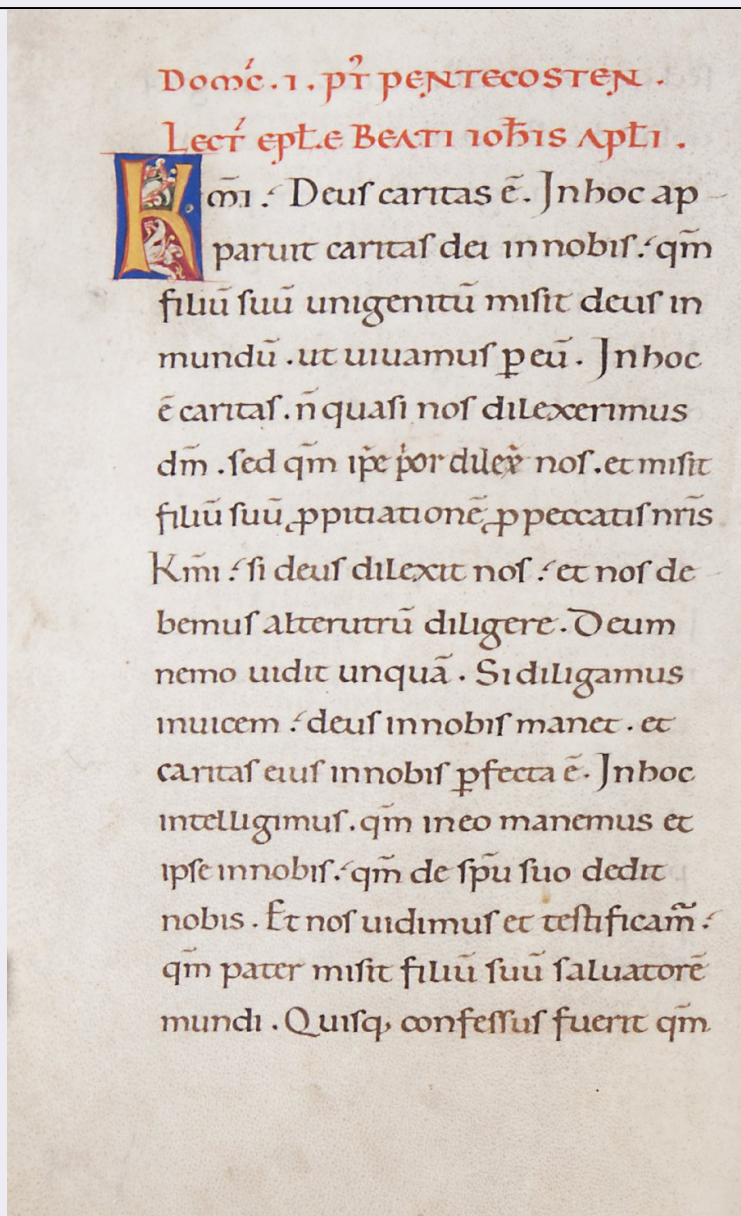 Domc̄. ı. pt̄ pentecosten.
Lect̄ epł.e Beati ioħis apłi.
Km̄i : Deuſ caritas ē. In hoc ap
paruit caritaſ dei in nobiſ : qm̄
filiū ſuū unigenitū miſit deuſ in
mundū . ut uiuamuſ ꝑ eū. In hoc
ē caritaſ. n̄ quaſi noſ dilexerimus
dm̄ . ſed qm̄ ip̄e p̍or dilex̄ noſ. et miſit
filiū ſuū ꝓpitiationē ꝓ peccatiſ nr̄is
Km̄i : ſi deuſ dilexit noſ : et noſ de
bemuſ alterutrū diligere. Deum
nemo uidit unquā. Si diligamus
inuicem : deuſ in nobiſ manet. et
caritaſ eiuſ in nobiſ ꝑfecta ē. In hoc
intelligimuſ. qm̄ in eo manemus et
ipſe in nobiſ : qm̄ de ſpū ſuo dedit
nobis. Et noſ uidimuſ et teſtificam̄ :
qm̄ pater miſit filiū ſuū ſaluatorē
mundi. Quiſq; confeſſuſ fuerit qm̄